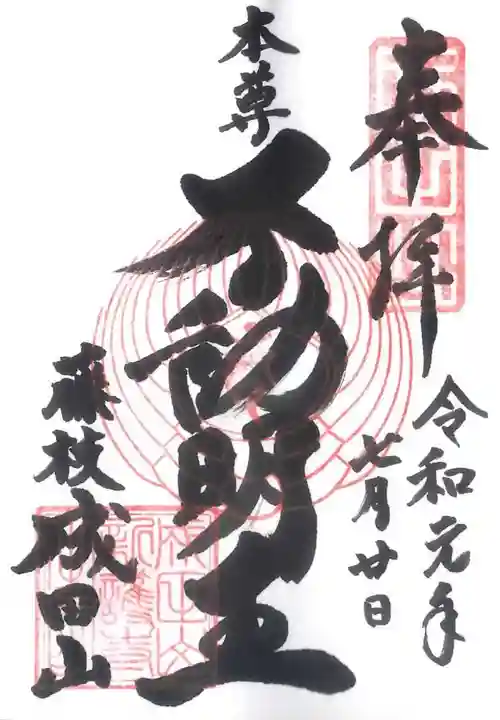 奉拝
令和元年
七月廿日
本尊
不動明王
藤枝
成田山